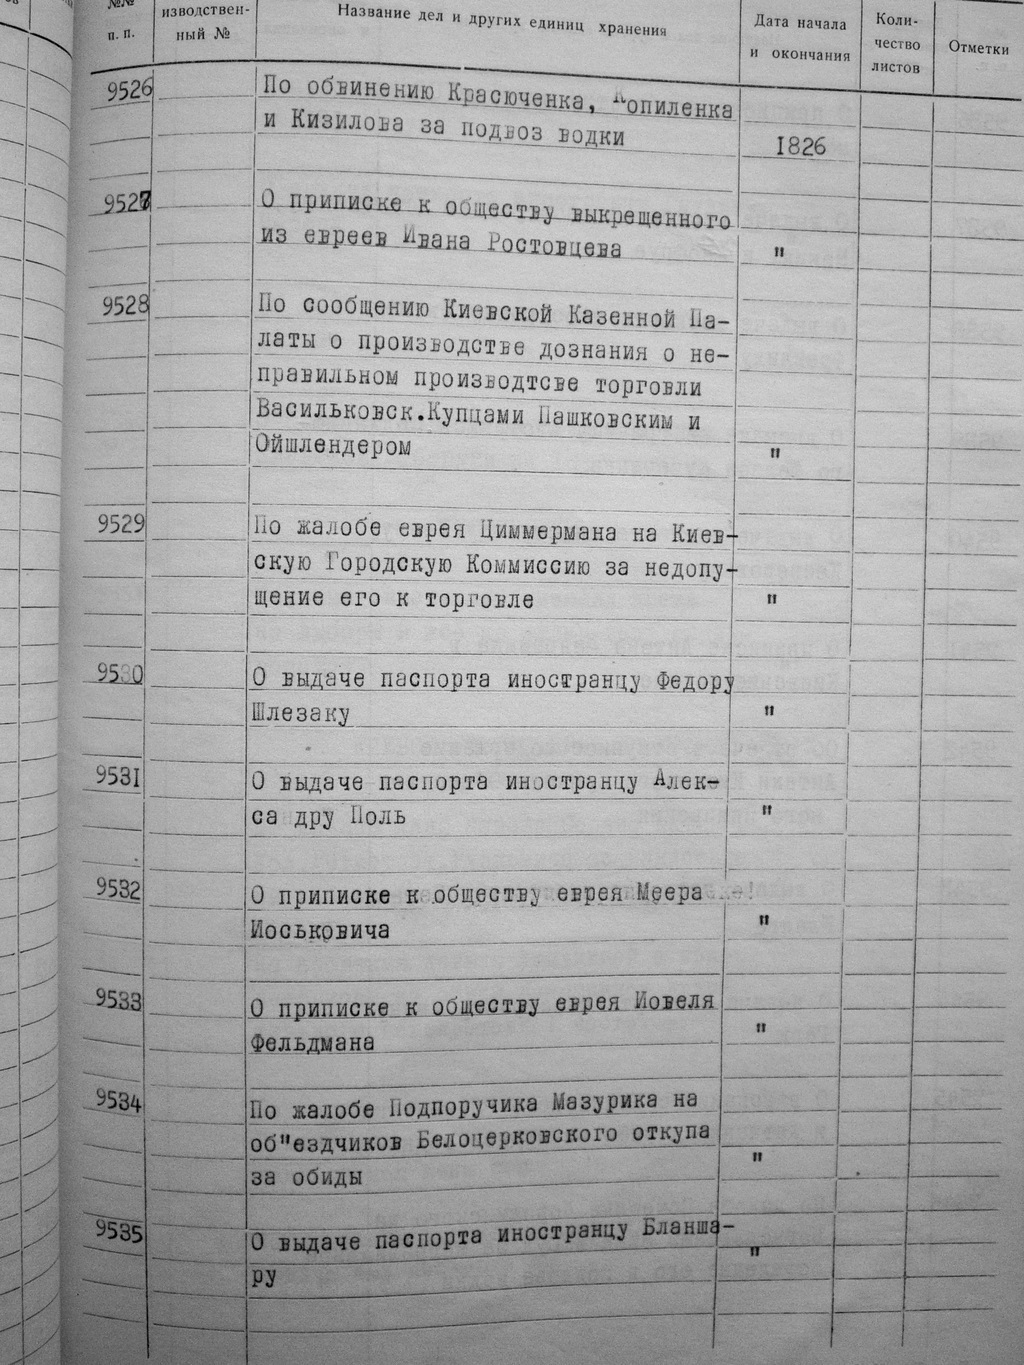 №№ п. п.
изводствен-
ный №
Название дел и других единиц хранения
Дата начала
и окончания
Коли-
чество
листов
Отметки
9526
По обвинению Красюченка, Копиленка
и Кизилова за подвоз водки
1826
9527
О приписке к обществу выкрещенного
из евреев Ивана Ростовцева "
9528
По сообщению Киевской Казенной Па-
латы о производстве дознания о не-
правильном производтсве торговли
Васильковск.Купцами Пашковским и
Ойшлендером "
9529
По жалобе еврея Циммермана на Киев-
скую Городскую Коммиссию за недопу-
щение его к торговле "
9530
О выдаче паспорта иностранцу Федору
Шлезаку "
9531
О выдаче паспорта иностранцу Алек-
са дру Поль "
9532
О приписке к обществу еврея Меера
Иоськовича "
9533
О приписке к обществу еврея Иовеля
Фельдмана "
9534
По жалобе Подпоручика Мазурика на
об"ездчиков Белоцерковского откупа
за обиды "
9535
О выдаче паспорта иностранцу Бланша-
ру "